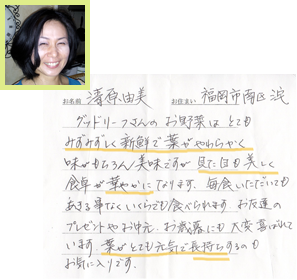 お名前 清原由美 お住まい 福岡市南区
グッドリーフさんのお野菜はとても
みずみずしく新鮮で葉がやわらかく
味がもちろん美味ですが見た目も美しく
食卓が華やかになります。毎食いただいても
あきる事なくいくらでも食べられます。お友達の
プレゼントやお中元、お歳暮にも大変喜ばれて
います。葉がとても元気で長持ちするのも
お気に入りです。